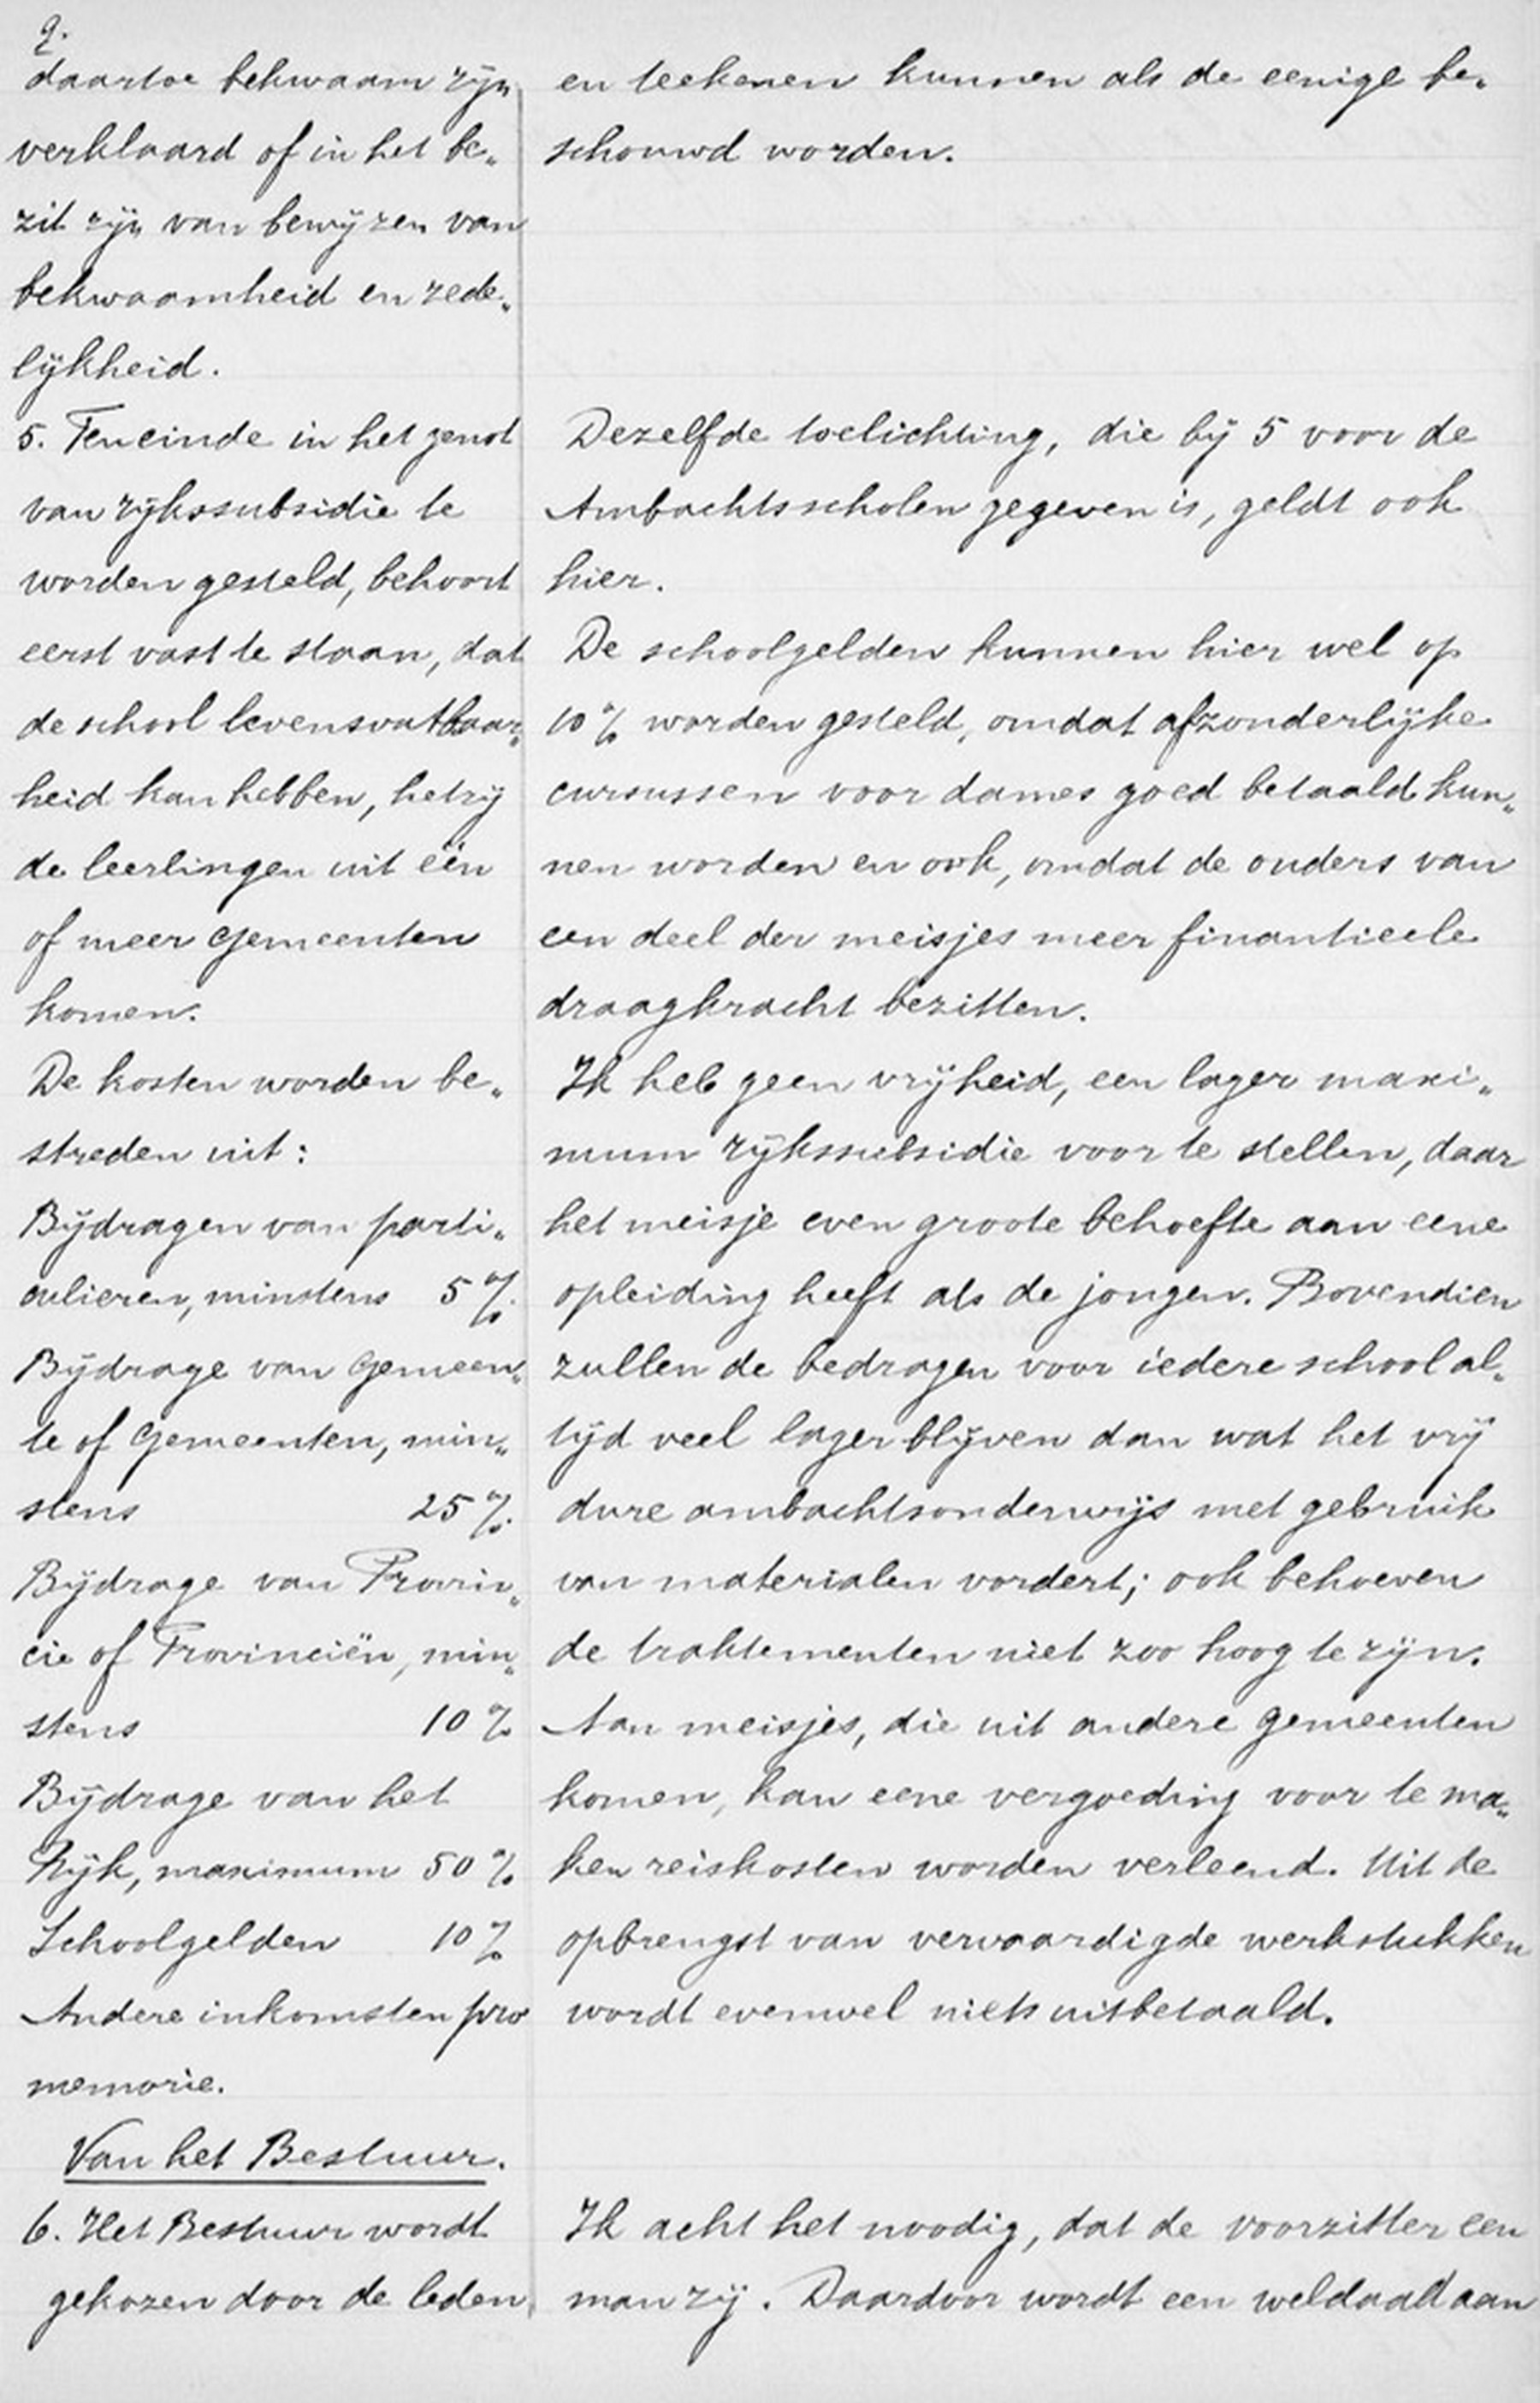 2.
daartoe bekwaam zijn
verklaard of in het be„
zit zijn van bewijzen van
bekwaamheid en zede„
lijkheid.
5. Teneinde in het genot
van rijkssubsidie te
worden gesteld, behoort
eerst vast te staan, dat
de school levensvatbaar„
heid kan hebben, hetzij
de leerlingen uit één
of meer gemeenten
komen.
De kosten worden be„
streden uit:
Bijdragen van parti„
culieren, minstens 5 %.
Bijdrage van Gemeen„
te of Gemeenten, min„
stens 25 %.
Bijdrage van Provin„
cie of Provinciën, min„
stens 10 %
Bijdrage van het
Rijk, maximum 50 %
Schoolgelden 10 %
Andere inkomsten pro
memorie.
Van het Bestuur.
6. Het Bestuur wordt
gekozen door de leden
en teekenen kunnen als de eenige be„
schouwd worden.
Dezelfde toelichting, die bij 5 voor de
Ambachtsscholen gegeven is, geldt ook
hier.
De schoolgelden kunnen hier wel op
10 % worden gesteld, omdat afzonderlijke
cursussen voor dames goed betaald kun„
nen worden en ook, omdat de ouders van
een deel der meisjes meer finantieele
draagkracht bezitten.
Ik heb geen vrijheid, een lager maxi„
mum rijkssubsidie voor te stellen, daar
het meisje even groote behoefte aan eene
opleiding heeft als de jongen. Bovendien
zullen de bedragen voor iedere school al„
tijd veel lager blijven dan wat het vrij
dure ambachtsonderwijs met gebruik
van materialen vordert; ook behoeven
de traktementen niet zoo hoog te zijn.
Aan meisjes, die uit andere gemeenten
komen, kan eene vergoeding voor te ma„
ken reiskosten worden verleend. Uit de
opbrengst van vervaardigde werkstukken
wordt evenwel niets uitbetaald.
Ik acht het noodig, dat de voorzitter een
man zij. Daardoor wordt een weldaad aan